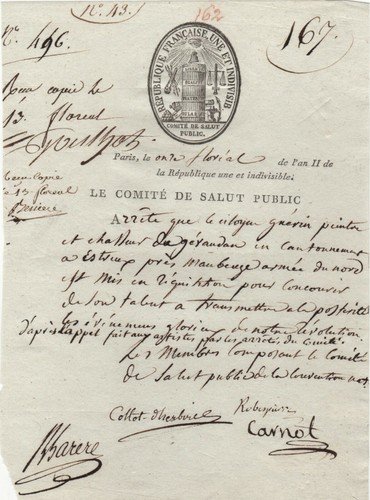 N.° 43.
162
167
N.° 496
RÉPUBLIQUE FRANÇAISE, UNE ET INDIVISIB
COMITÉ DE SALUT PUBLIC.
Reçu copie le
13 floreal
Paris, le onze floréal de l'an II de
la République une et indivisible.
Reçu Copie
13 floreal
LE COMITÉ DE SALUT PUBLIC
Arrête que le citoyen Guérin peintre
et chasseur du gévaudan en cantonnement
a près Maubeuge armée du nord
est mis en réquisition pour concourir
de son talent a transmettre a la postérité
les évènemens glorieux de notre révolution.
d'après l'appel fait aux artistes par les arrêtés du Comité
Les Membres Composant le Comité
de Salut public de la Convention nat.
Collot-d'herbois Robespierre
Carnot
B Barere